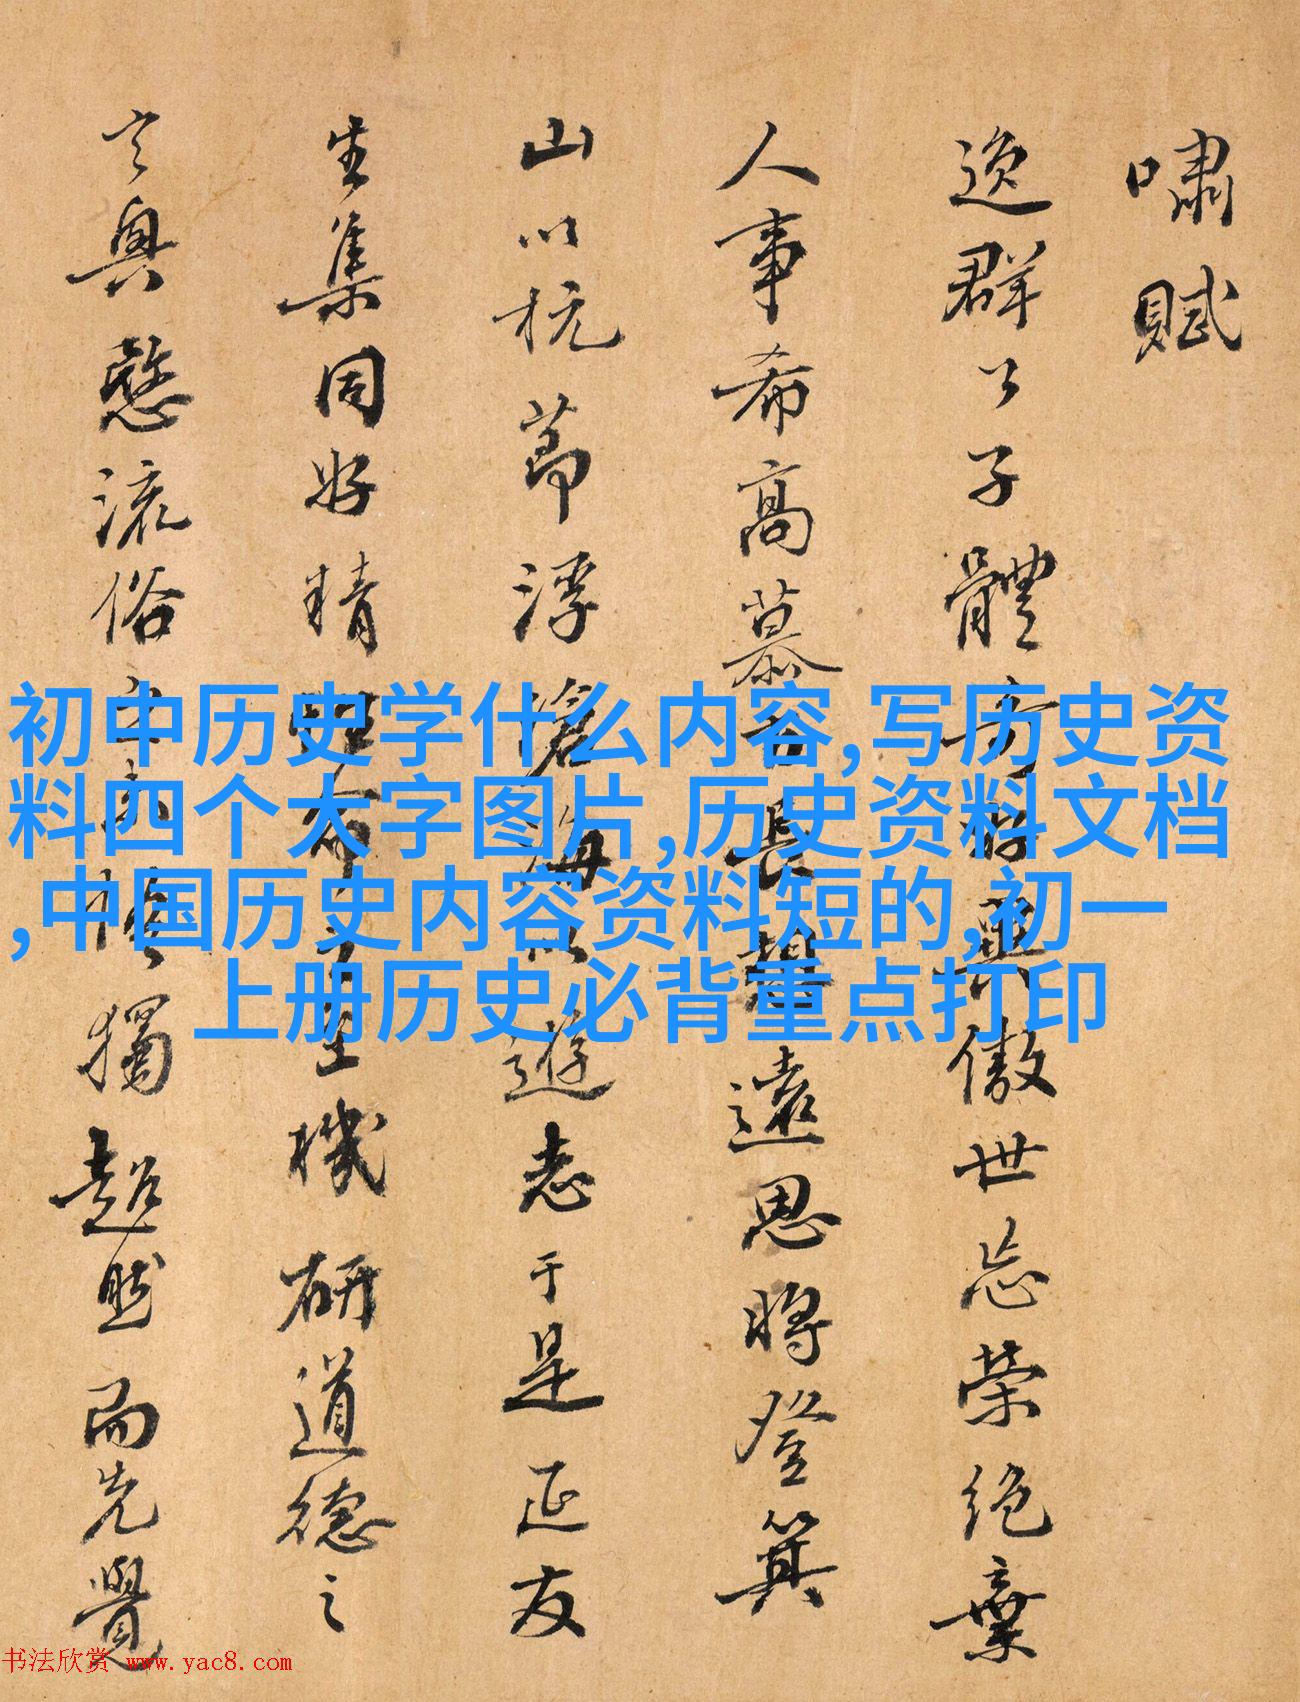 嘯賦
逸群公子體奇好異傲世忘榮絕棄
人事希高慕古長想遠思將登箕
山以抗節浮滄海以遊志于是延友
生集同好精性命之至機研道德之
玄奧愍流俗之未悟獨超然而先覺
初中历史学什么内容,写历史资
料四个大字图片,历史资料文档
,中国历史内容资料短的,初一
上册历史必背重点打印
书法欣赏 www.yac8.com